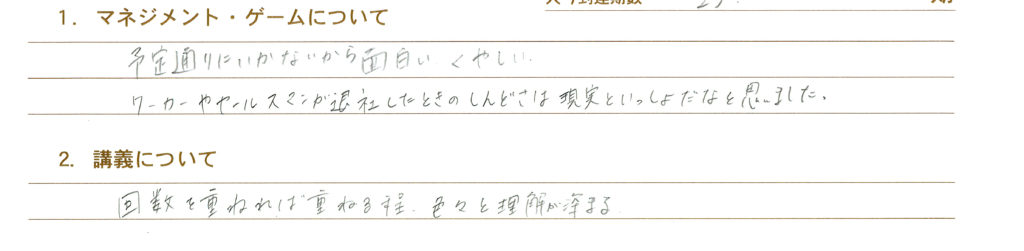 1. マネジメント・ゲームについて
予定通りにいかないから面白い. くやしい.
ワーカーやセールスマンが退社したときのしんどさは現実といっしょだなと思いました。
2. 講義について
回数を重ねれば重ねる程、色々と理解が深まる